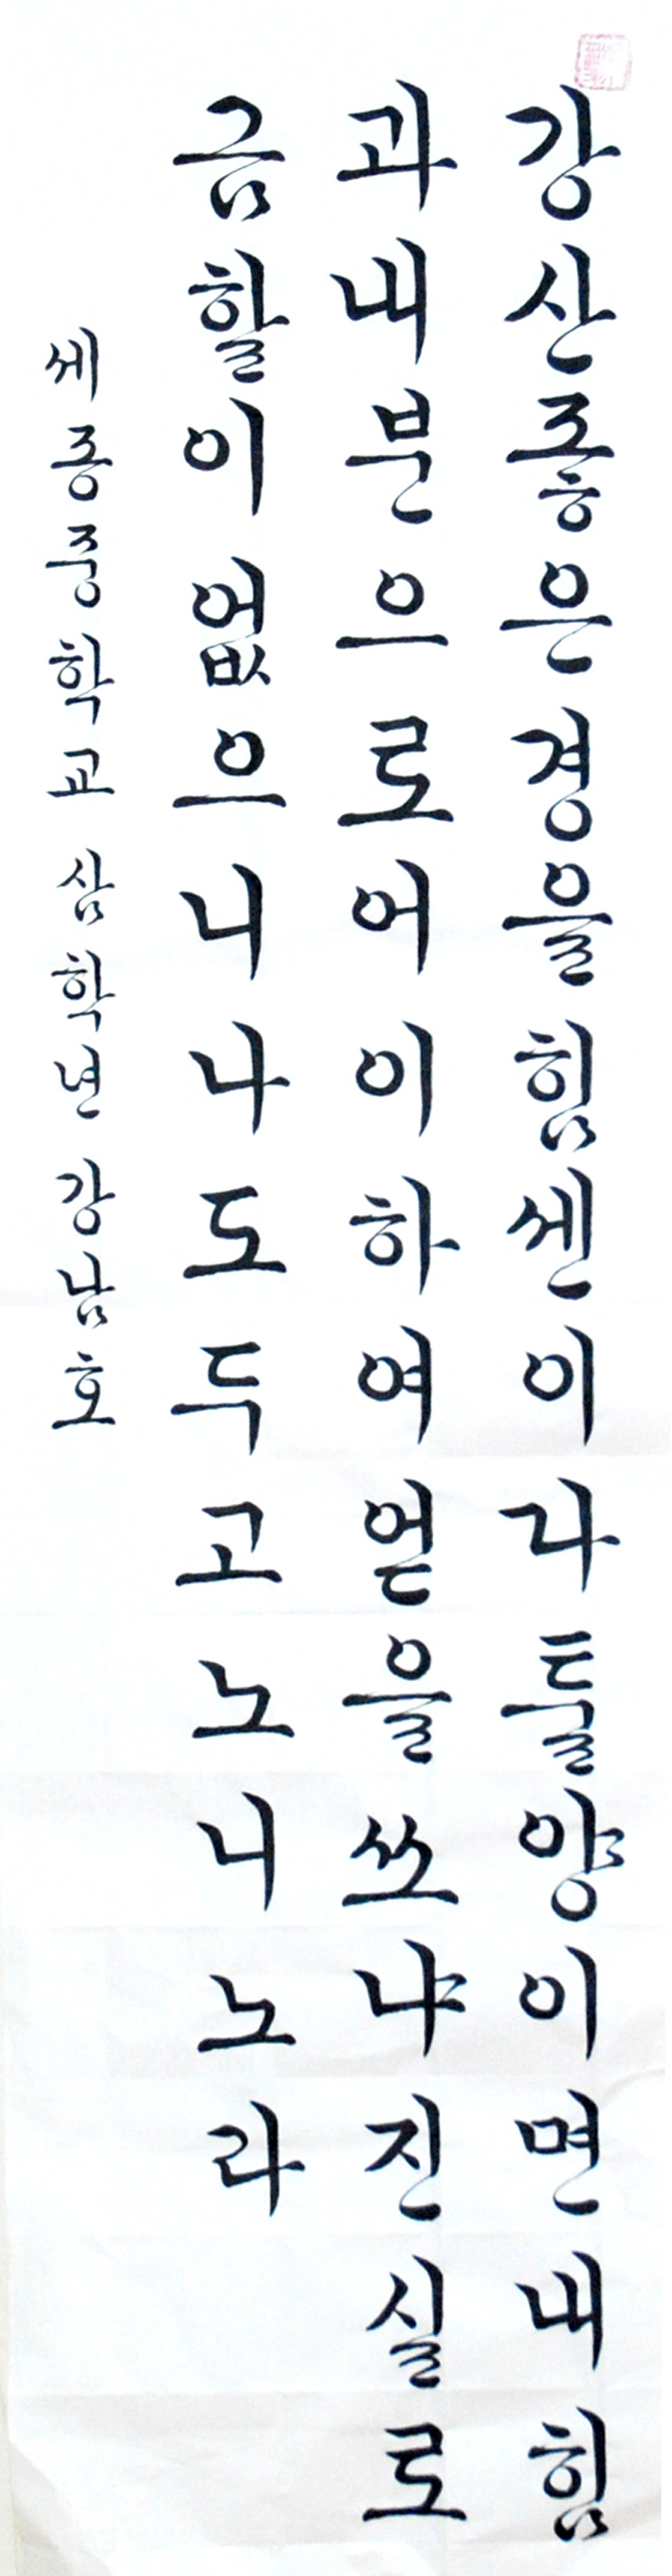 강산좋은경을힘센이다툴양이면내힘
과내분으로어이하여얻을쏘냐진실로
금할이없으니나도두고노니노라
세종중학교 삼학년 강남호